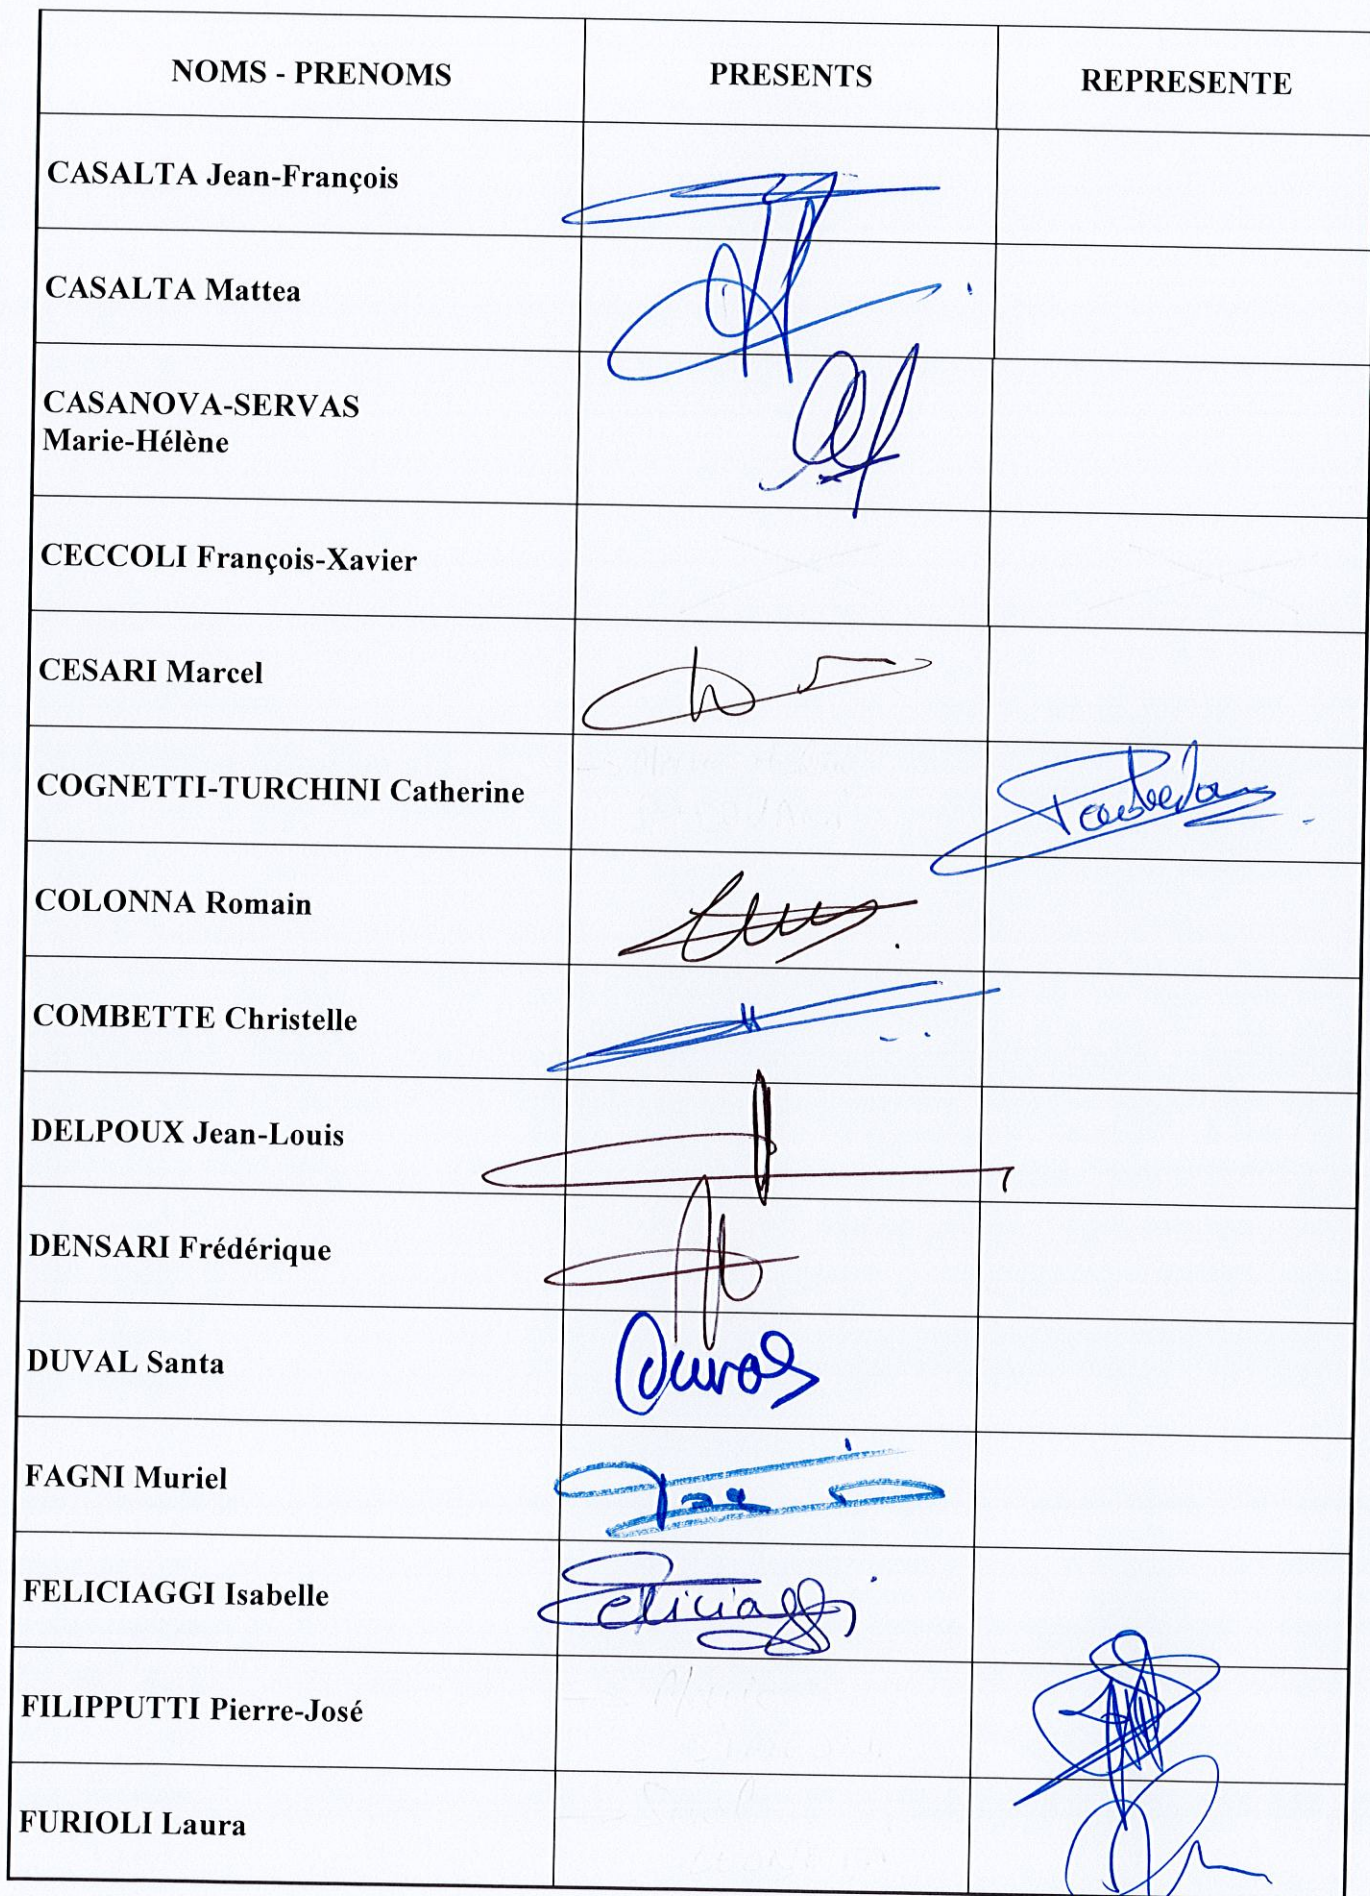 NOMS - PRENOMS PRESENTS REPRESENTE
CASALTA Jean-François
CASALTA Mattea
CASANOVA-SERVAS
Marie-Hélène
CECCOLI François-Xavier
CESARI Marcel
COGNETTI-TURCHINI Catherine
COLONNA Romain
COMBETTE Christelle
DELPOUX Jean-Louis
DENSARI Frédérique
DUVAL Santa Duval
FAGNI Muriel
FELICIAGGI Isabelle Feliciaggi
FILIPPUTTI Pierre-José
FURIOLI Laura